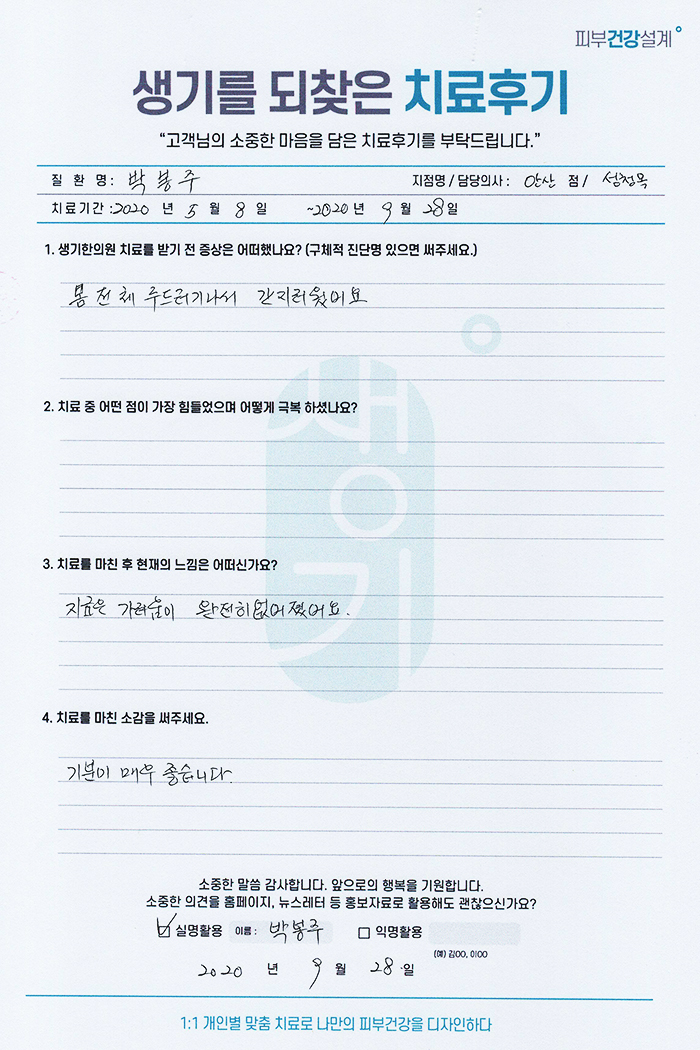 피부건강설계
생기를 되찾은 치료후기
“고객님의 소중한 마음을 담은 치료후기를 부탁드립니다.”
질 환 명 : 박봉주 지점명 / 담당의사 : 안산 점 /
치료기간 : 2020 년 5 월 8 일 ~2020 년 9 월 28 일
1. 생기한의원 치료를 받기 전 증상은 어떠했나요? (구체적 진단명 있으면 써주세요.)
몸 전체 두드러기나서 간지러웠어요
2. 치료 중 어떤 점이 가장 힘들었으며 어떻게 극복 하셨나요?
생기
3. 치료를 마친 후 현재의 느낌은 어떠신가요?
지금은 가려움이 완전히 없어졌어요.
4. 치료를 마친 소감을 써주세요.
기분이 매우 좋습니다.
소중한 말씀 감사합니다. 앞으로의 행복을 기원합니다.
소중한 의견을 홈페이지, 뉴스레터 등 홍보자료로 활용해도 괜찮으신가요?
실명활용 이름 : 박봉주 익명활용
(예) 김OO, 이OO
2020 년 9 월 28 일
1:1 개인별 맞춤 치료로 나만의 피부건강을 디자인하다